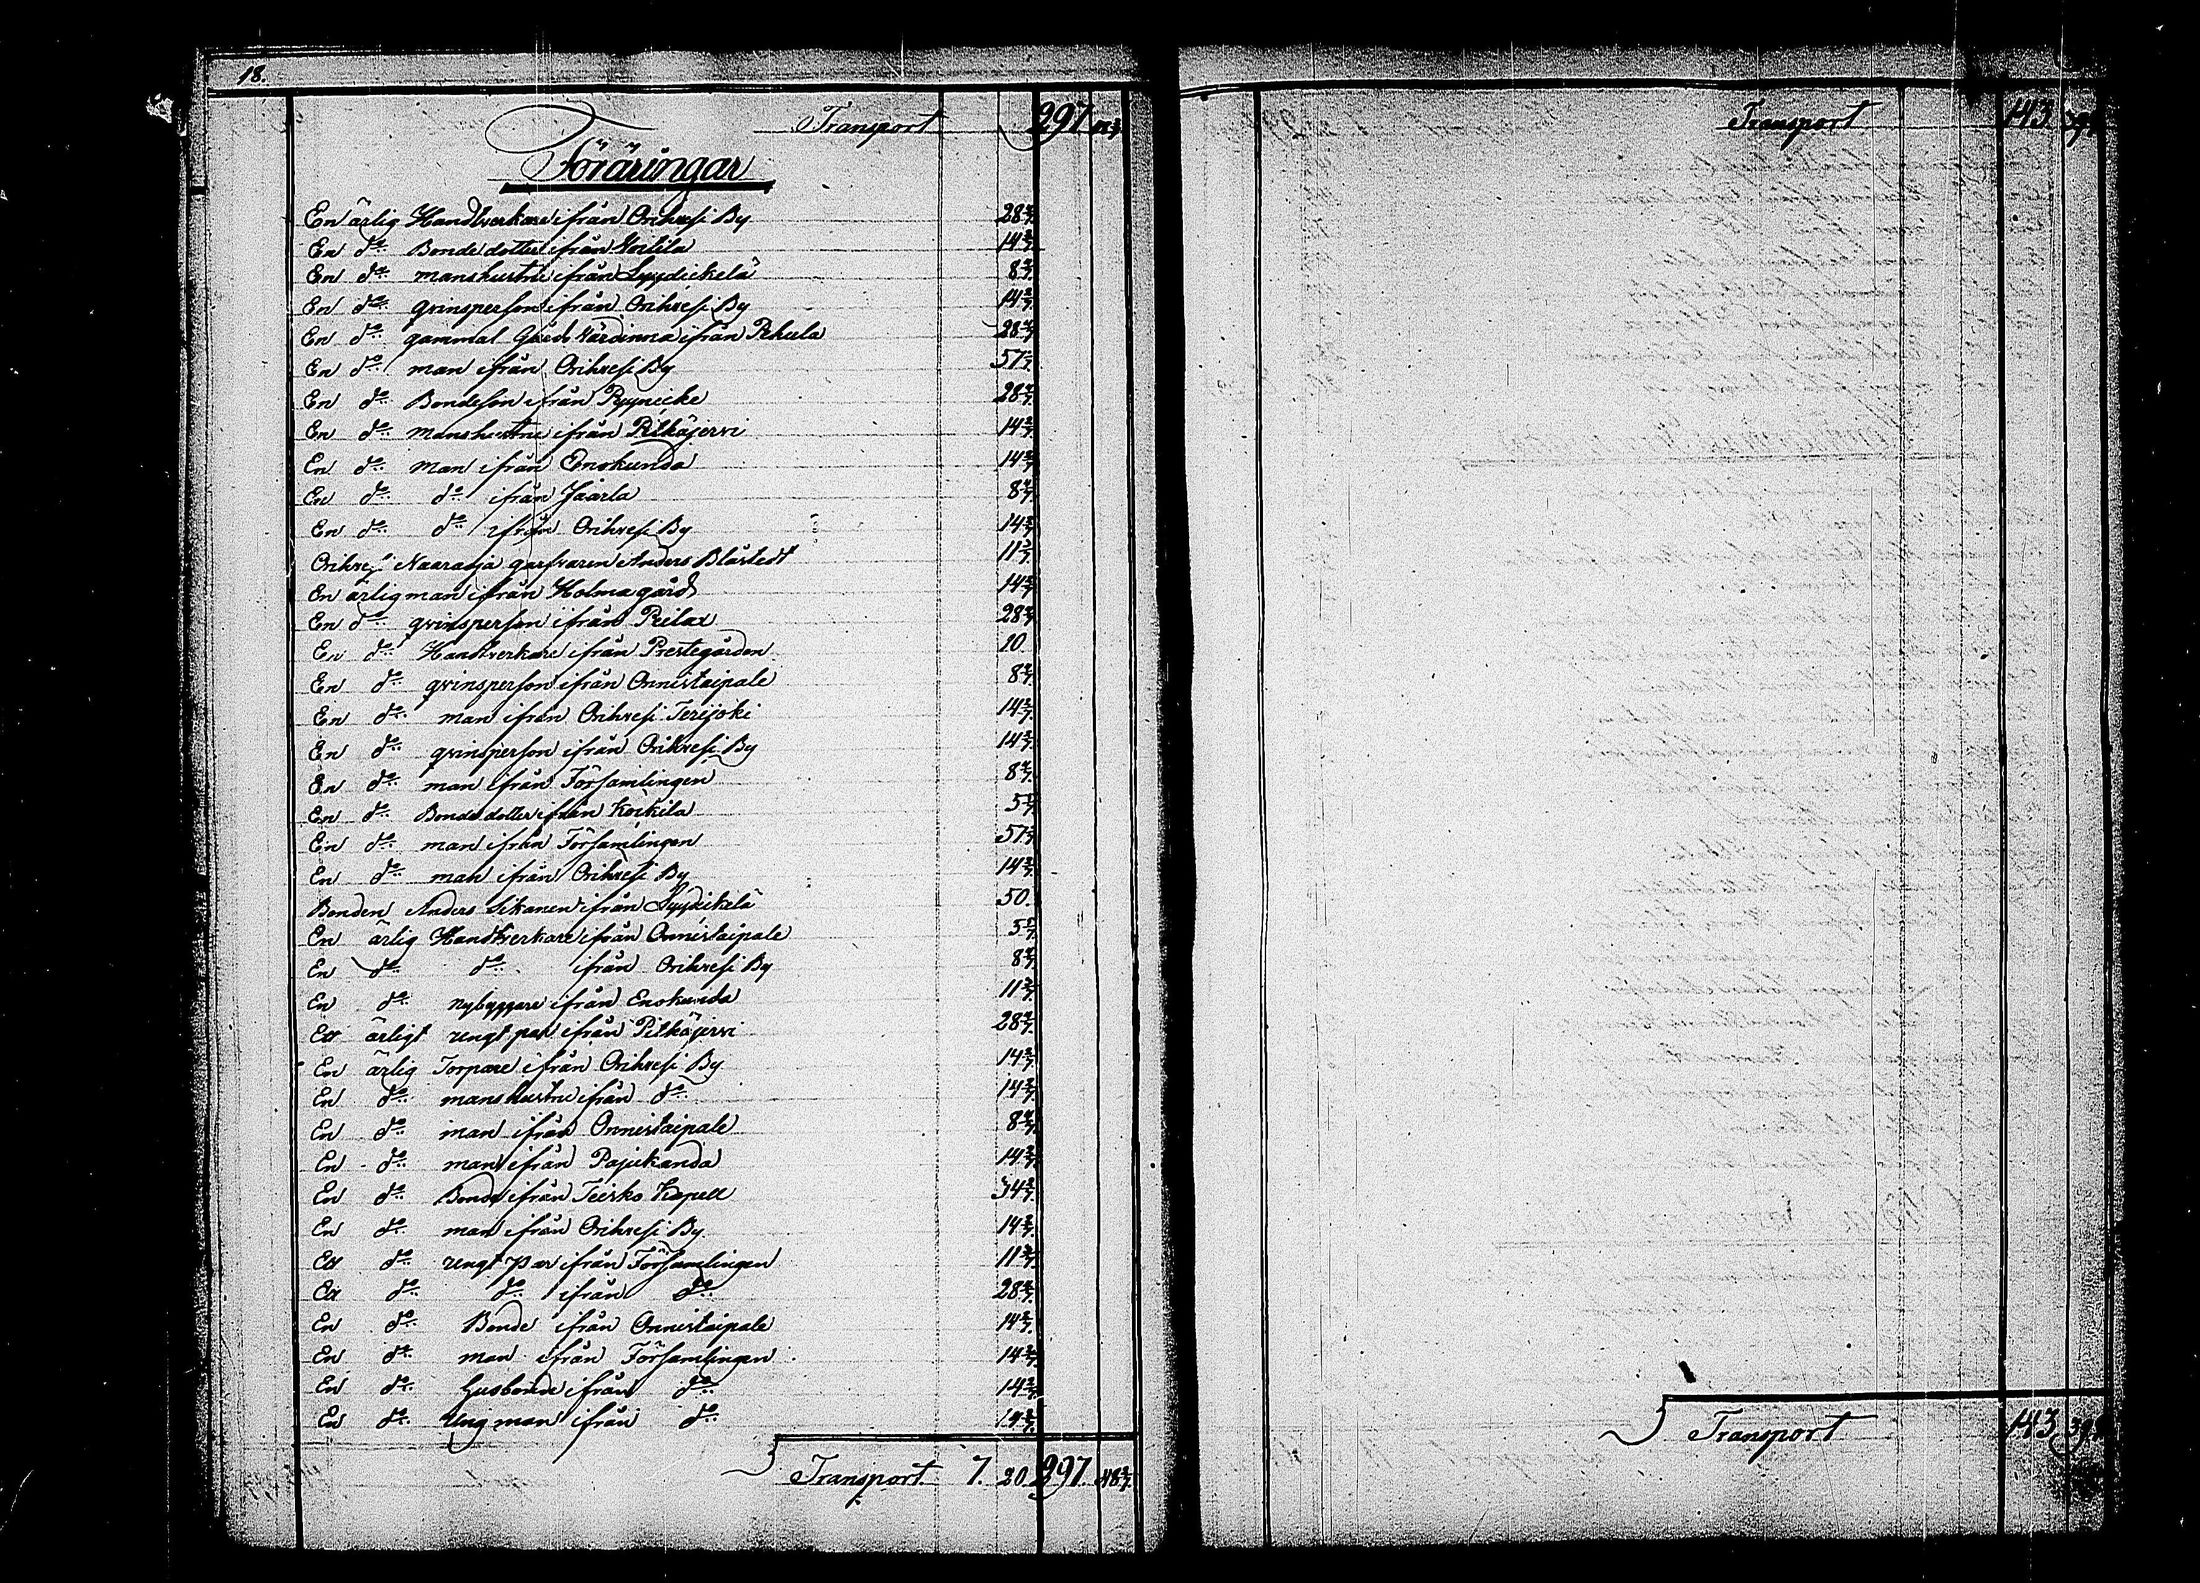 18.
Transport 297 48 2/7
Föräringar
En ärlig Handtverkare ifrån Orihvesi By 28 4/7
En do Bondedotter ifrån Voitila 14 2/7
En do manshustru ifrån Lyydickelä 8 4/7
En do qvinsperson ifrån Orihvesi By 14 2/7
En do gammal Gårds Värdinna ifrån Pehula 28 4/7
En do man ifrån Orihvesi By 57 1/7
En do Bondeson ifrån Pyynicke 28 4/7
En do manshustru ifrån Pitkäjervi 14 2/7
En do man ifrån Enokunda 14 2/7
En do do ifrån Jäärla 8 4/7
En do do ifrån Orihvesi By 14 2/7
Orihvesi Naaradja garfvaren Anders Blåstedt 11 3/7
En ärlig man ifrån Holma gård 14 2/7
En do qvinsperson ifrån Peilax 28 4/7
En do Handtverkare ifrån Prestegården 10
En do qvinsperson ifrån Onnistaipale 8 4/7
En do man ifrån Orihvesi Terijoki 14 2/7
En do qvinsperson ifrån Orihvesi By 14 2/7
En do man ifrån Församlingen 8 4/7
En do Bondedotter ifrån Koikila 5 5/7
En do man ifrån Församlingen 57 1/7
En do man ifrån Orihvesi By 14 2/7
Bonden Anders Sikanen ifrån Lyydikelä 50.
En ärlig Handtverkare ifrån Onnistaipale 5 5/7
En do do ifrån Orihvesi By 8 4/7
En do nybyggare ifrån Enokunda 11 3/7
Ett ärligt ungt par ifrån Pitkäjervi 28 4/7
En ärlig Torpare ifrån Orihvesi By 14 2/7
En do manshustru ifrån do 14 2/7
En do man ifrån Onnistaipale 8 4/7
En do man ifrån Pajukanda 14 2/7
En do Bonde ifrån Teisko Kapell 34 2/7
En do man ifrån Orihvesi By 14 2/7
Ett do ungt par ifrån Församlingen 11 3/7
Ett do do ifrån do 28 4/7
En do Bonde ifrån Onnistaipale 14 2/7
En do man ifrån Församlingen 14 2/7
En do Husbonde ifrån do 14 2/7
En do ung man ifrån do 14 2/7
Transport 7. 20 297. 48 2/7
Transport 143
Transport 143